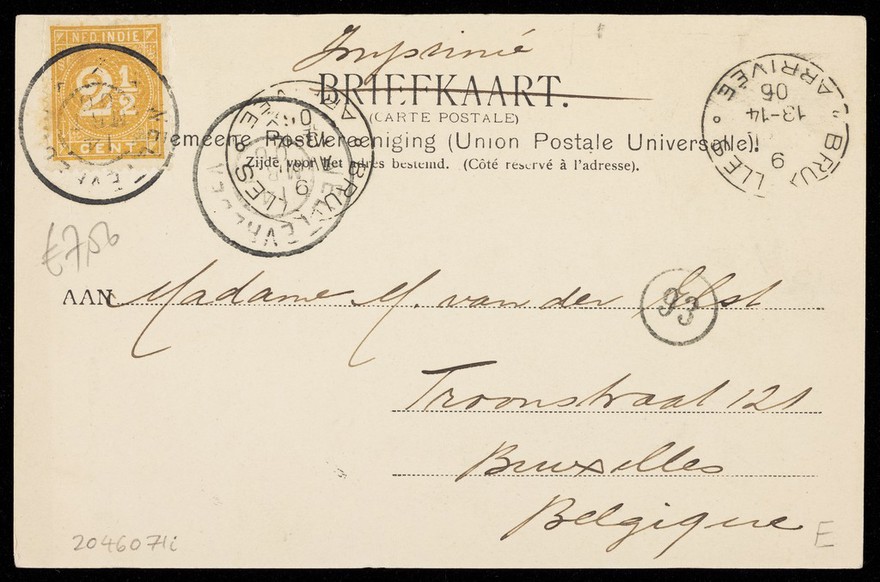 NED. INDIE
2½
CENT.
Imprimé
BRIEFKAART.
(CARTE POSTALE)
emeene Postvereeniging (Union Postale Universelle).
Zijde voor het adres bestemd. (Côté reservé à l'adresse).
ARRIVÉE
13-14
06
9
€7,50
AAN Madame M. van der Elst
93
Troonstraat 121
Bruxelles
Belgique
2046071i
E